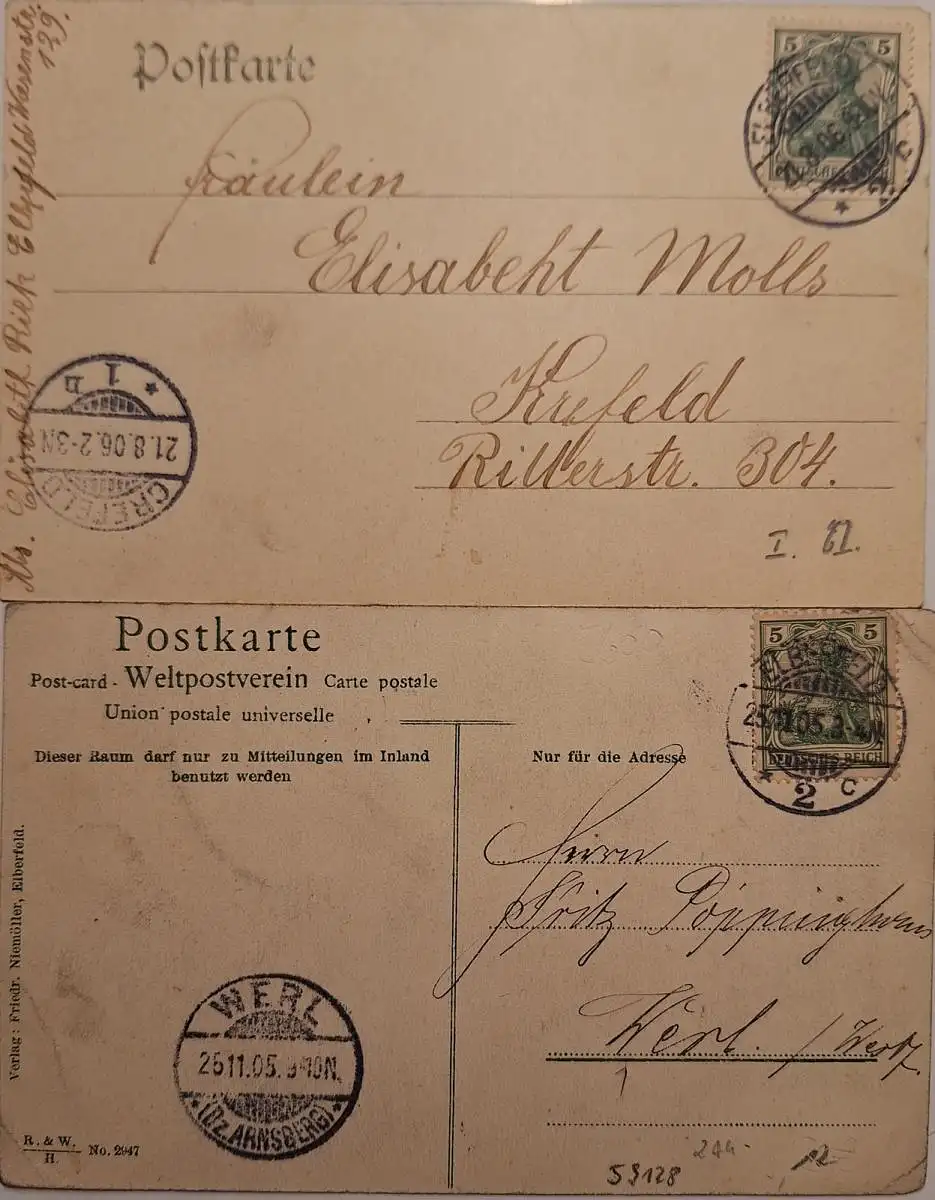 Postkarte
5 5
ELBERFELD
DEUTSCHES REICH
* 2 c
Fräulein
Elisabeht Molls
Krefeld
Ritterstr. 304.
Abs. Elisabeth Riek Elberfeld
129
CREFELD
21.8.06.2-3N.
* 1 b
I.
Postkarte
Post-card - Weltpostverein Carte postale
Union postale universelle
Dieser Raum darf nur zu Mitteilungen im Inland
benutzt werden
Nur für die Adresse
5 5
ELBERFELD
DEUTSCHES REICH
* 2 c
Herrn
Fritz Pöppinghaus
Werl. /Westf.
WERL
26.11.05. 9-10N.
* (Bz. ARNSBERG) *
Verlag: Friedr. Niemöller, Elberfeld.
R. & W.
H.
No. 2947
244-
59128